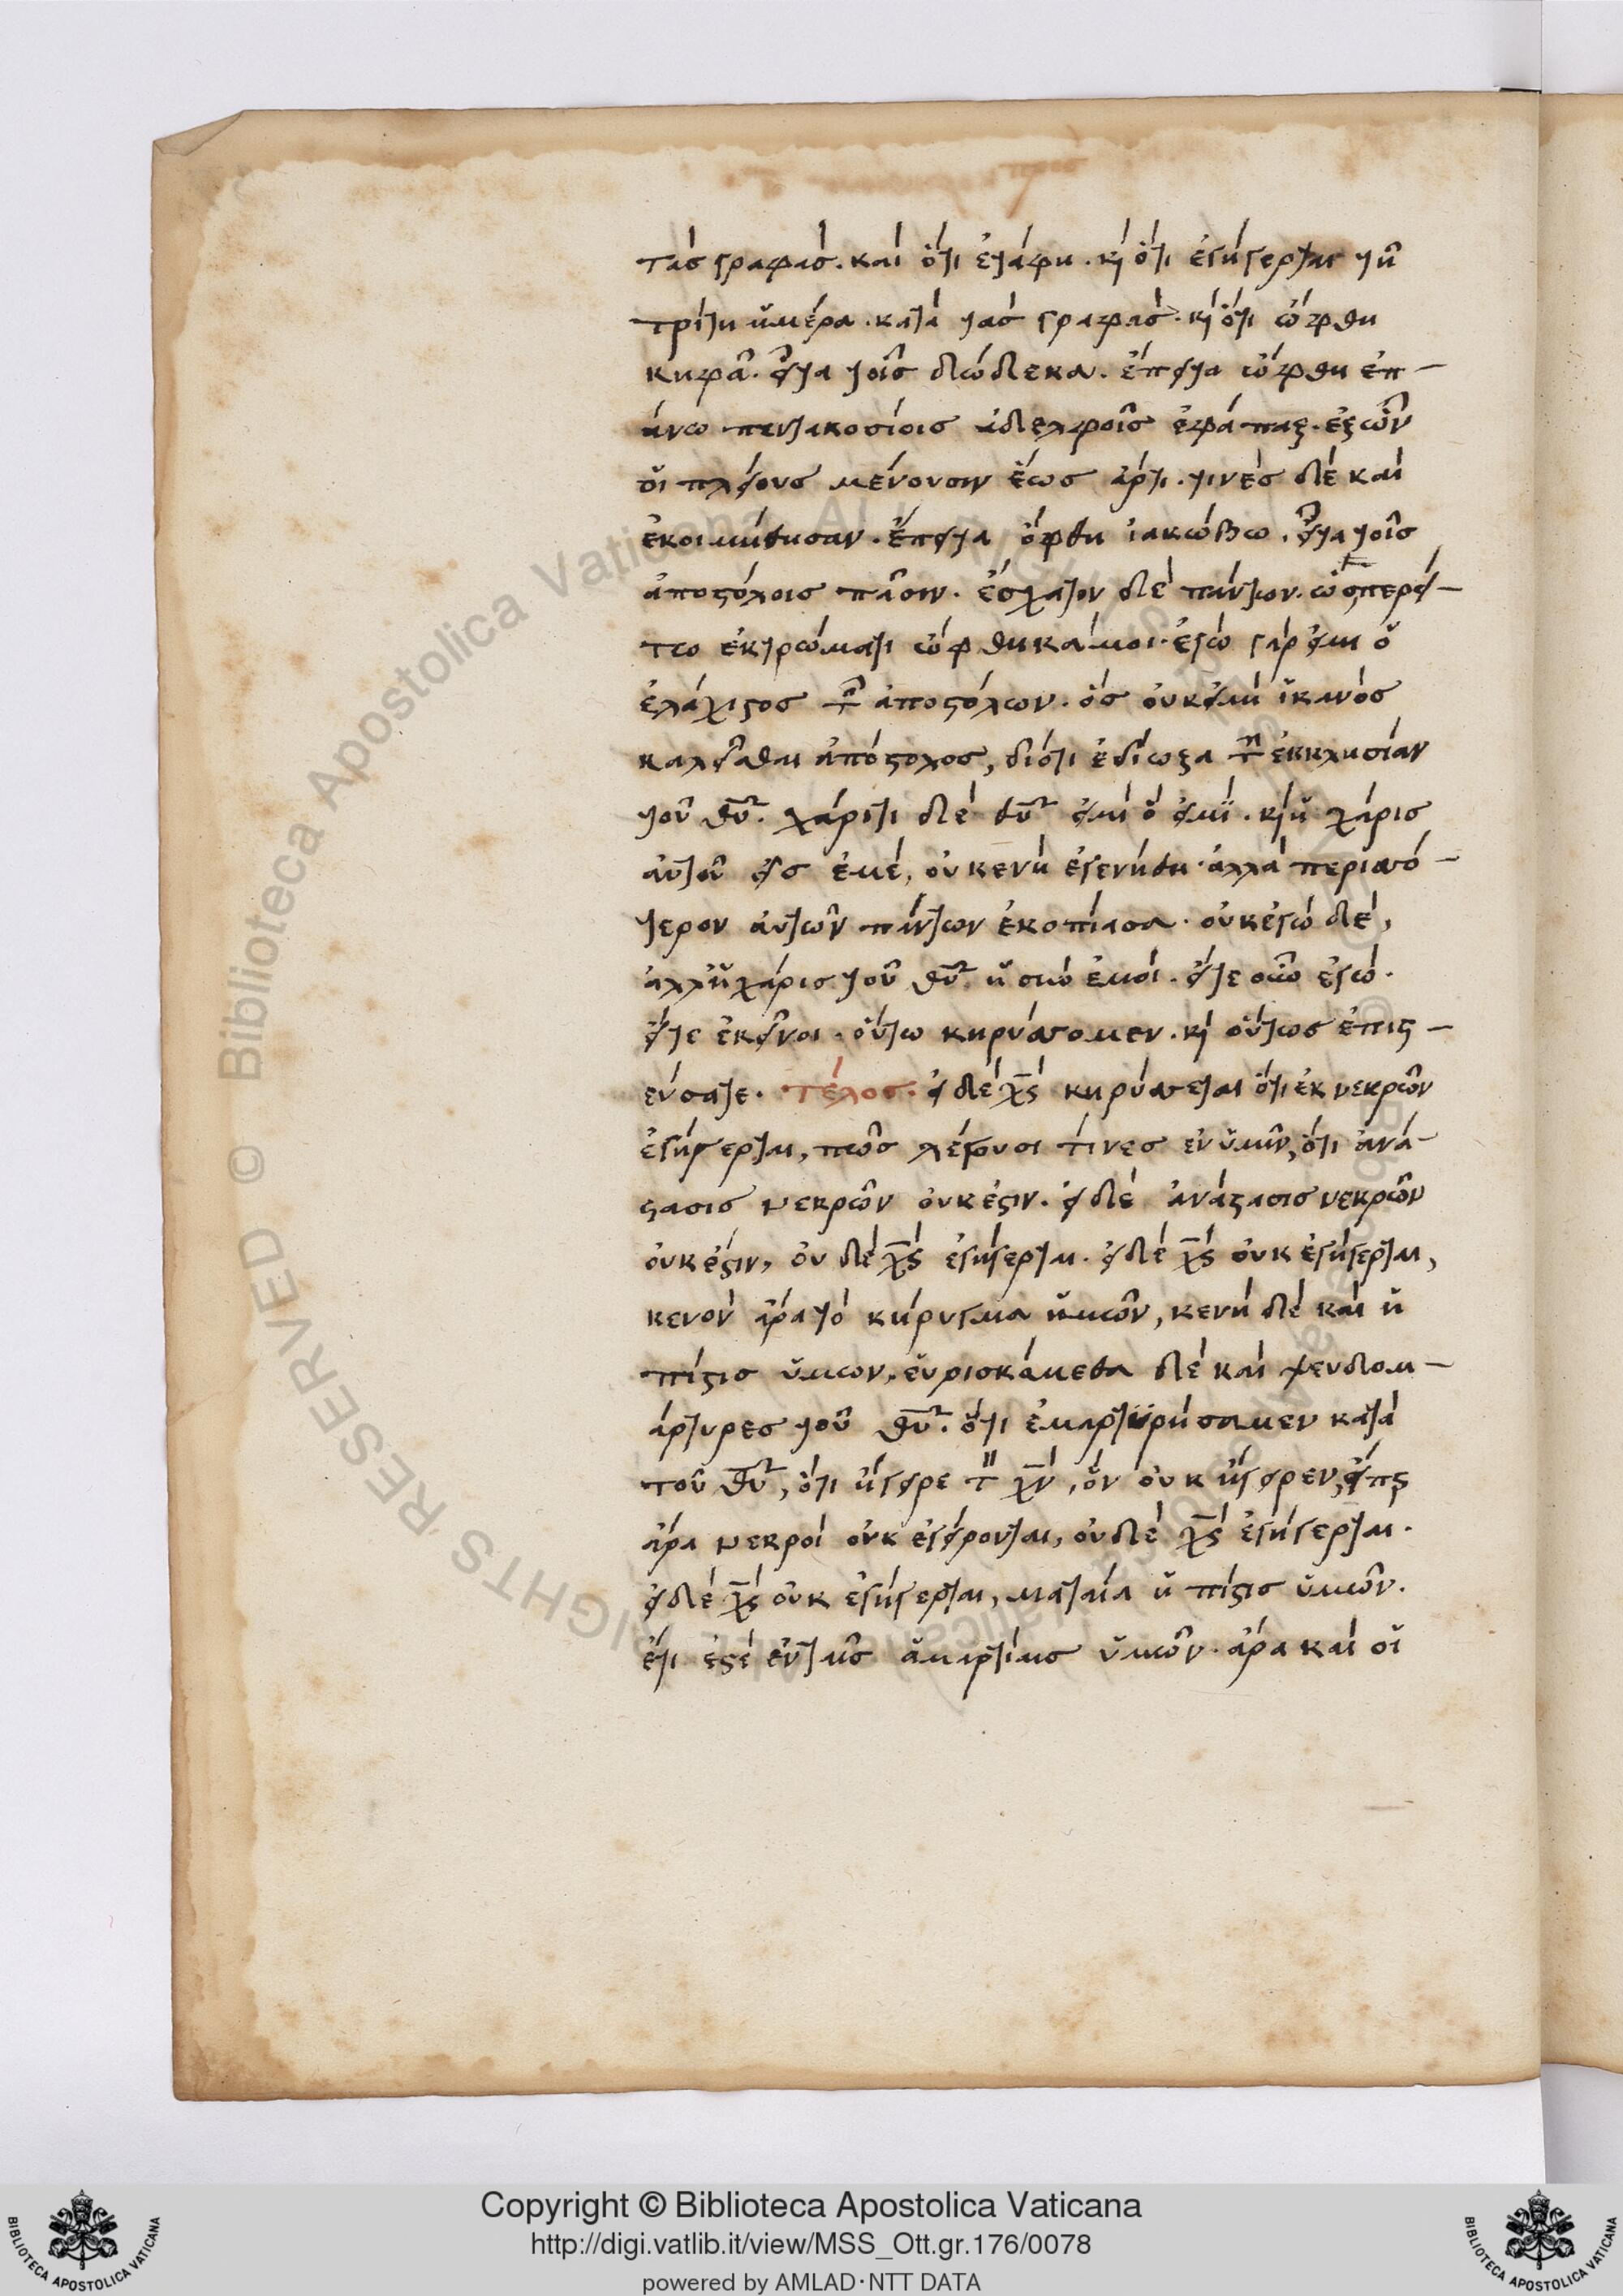 τὰσ γραφὰσ. καὶ ὅτι ἐτάφη. κ(αὶ) ὅτι ἐγήγερται τῆ
τρίτη ἡμέρα. κατὰ τὰσ γραφάσ. κ(αὶ) ὅτι ὤφθη
κηφᾶ. εἶτα τοῖσ δώδεκα. ἔπειτα ὤφθη ἐπ-
άνω πεντακοσίοισ ἀδελφοῖσ ἐφάπαξ. ἐξ ὧν
οἱ πλείουσ μένουσιν ἕωσ ἄρτι. τινὲσ δὲ καὶ
ἐκοιμήθησαν. ἔπειτα ὄφθη ἰακώβω. εἶτα τοῖσ
ἀποστόλοισ πᾶσιν. ἔσχατον δὲ πάντων. ὡσπερεὶ-
τω ἐκτρώματι ὤφθη καμοί. ἐγὼ γάρ εἰμι ὁ
ἐλάχιστοσ τ(ῶν) ἀποστόλων. ὃσ οὐκ εἰμὶ ἱκανὸσ
καλεῖσθαι ἀπόστολοσ, διότι ἐδίωξα τ(ὴν) ἐκκλησίαν
τοῦ θυ. χάριτι δὲ θυ εἰμὶ ὅ εἰμϊ. κ(αὶ) ἡ χάρισ
αὐτοῦ εἰσ ἐμὲ, οὐ κενὴ ἐγενήθη. ἀλλὰ περισσό-
τερον αὐτῶν πάντων ἐκοπίασα. οὐκ ἐγὼ δὲ,
ἀλλ' ἡ χάρισ τοῦ θυ ἡ σὺν ἐμοί. εἴτε οὖν ἐγὼ.
εἴτε ἐκεῖνοι. οὕτω κηρύσσομεν. κ(αὶ) οὕτωσ ἐπιστ-
εύσατε. τέλοσ. εἰ δὲ χσ κηρύσσεται ὅτι ἐκ νεκρῶν
ἐγήγερται, πῶσ λέγουσι τίνεσ ἐν ὑμῖν, ὅτι ἀνά-
στασισ νεκρῶν οὐκ ἔστιν. εἰ δὲ ἀνάστασισ νεκρῶν
οὐκ ἔστιν, οὐ δὲ χσ ἐγήγερται. εἰ δὲ χσ οὐκ ἐγήγερται,
κενὸν ἄρα τὸ κήρυγμα ἡμῶν, κενὴ δὲ καὶ ἡ
πίστισ ὑμων, εὑρισκόμεθα δὲ καὶ ψευδομ-
άρτυρεσ τοῦ θυ. ὅτι ἐμαρτϋρήσαμεν κατὰ
τοῦ θυ, ὅτι ἤγειρε τ(ὸν) χν, ὃν οὐκ ἤγειρεν, εἴπερ
ἄρα νεκροὶ οὐκ ἐγείρονται, οὐδὲ χσ ἐγήγερται.
εἰ δὲ χσ οὐκ ἐγήγερται, ματαία ἡ πίστισ ὑμῶν.
ἔτι ἐστὲ ἐν ταῖσ ἁμαρτίαισ ὑμῶν. ἄρα καὶ οἱ
© Biblioteca Apostolica Vaticana ALL RIGHTS RESERVED
Copyright © Biblioteca Apostolica Vaticana
http://digi.vatlib.it/view/MSS_Ott.gr.176/0078
powered by AMLAD·NTT DATA
BIBLIOTECA APOSTOLICA VATICANA
BIBLIOTECA APOSTOLICA VATICANA